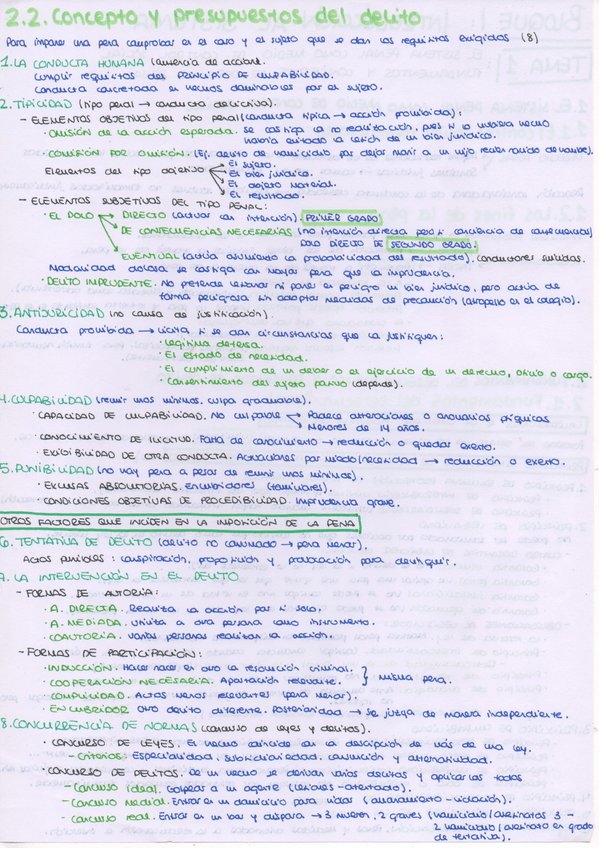 2.2. Concepto y presupuestos del delito
Para imponer una pena comprobar en el caso y el sujeto que se dan los requisitos exigidos (8)
1. LA CONDUCTA HUMANA (ausencia de acción).
Cumplir requisitos del PRINCIPIO DE CULPABILIDAD.
Conducta concretada en hechos dominables por el sujeto.
2. TIPICIDAD (tipo penal → conducta delictiva).
- ELEMENTOS OBJETIVOS del tipo penal (conducta típica → acción prohibida):
· Omisión de la acción esperada. se castiga la no realización, pues si lo hubiera hecho
habría evitado la lesión de un bien jurídico.
· Comisión por omisión. (Ej. delito de homicidio por dejar morir a un hijo recién nacido de hambre).
Elementos del tipo objetivo
El sujeto.
El bien jurídico.
El objeto material.
El resultado.
- ELEMENTOS SUBJETIVOS DEL TIPO PENAL:
· EL DOLO
DIRECTO (actuar con intención). PRIMER GRADO
DE CONSECUENCIAS NECESARIAS (no intención directa pero si conciencia de consecuencias)
DOLO DIRECTO DE SEGUNDO GRADO.
EVENTUAL (actúa asumiendo la probabilidad del resultado). conductores suicidas.
Modalidad dolosa se castiga con mayor pena que la imprudencia.
· DELITO IMPRUDENTE. No pretende lesionar ni poner en peligro un bien jurídico, pero actúa de
forma peligrosa sin adoptar medidas de precaución (atropello en el colegio).
3. ANTIJURICIDAD (no causa de justificación).
Conducta prohibida → lícita si se dan circunstancias que la justifiquen:
· Legítima defensa.
· El estado de necesidad.
· El cumplimiento de un deber o el ejercicio de un derecho, oficio o cargo.
· Consentimiento del sujeto pasivo (depende).
4. CULPABILIDAD (reunir unos mínimos, culpa graduable).
· CAPACIDAD DE CULPABILIDAD. No culpable
Padece alteraciones o anomalías psíquicas
Menores de 14 años.
· CONOCIMIENTO DE ILICITUD. Falta de conocimiento → reducción o quedar exento.
· EXIGIBILIDAD DE OTRA CONDUCTA. Actuaciones por miedo/necesidad → reducción o exento.
5. PUNIBILIDAD (no hay pena a pesar de reunir unos mínimos).
· EXCUSAS ABSOLUTORIAS. Encubridores (familiares).
· CONDICIONES OBJETIVAS DE PROCEDIBILIDAD. Imprudencia grave.
OTROS FACTORES QUE INCIDEN EN LA IMPOSICIÓN DE LA PENA
6. TENTATIVA DE DELITO (delito no consumado → pena menor).
Actos punibles: conspiración, proposición y provocación para delinquir.
7. LA INTERVENCIÓN EN EL DELITO
- FORMAS DE AUTORÍA:
· A. DIRECTA. Realiza la acción por si solo.
· A. MEDIADA. Utiliza a otra persona como instrumento.
· COAUTORÍA. Varias personas realizan la acción.
- FORMAS DE PARTICIPACIÓN:
· INDUCCIÓN. Hacer nacer en otro la resolución criminal.
· COOPERACIÓN NECESARIA. Aportación relevante. } misma pena.
· COMPLICIDAD. Actos menos relevantes (pena menor).
· ENCUBRIDOR otro delito diferente. Posterioridad → Se juzga de manera independiente.
8. CONCURRENCIA DE NORMAS (concurso de leyes y delitos).
· CONCURSO DE LEYES. El hecho coincide en la descripción de más de una ley.
- Criterios: Especialidad, subsidiariedad, consunción y alternatividad.
· CONCURSO DE DELITOS. De un hecho se derivan varios delitos y aplicarlas todas
- Concurso ideal. Golpear a un agente (lesiones - atentado).
- Concurso medial. Entrar en un domicilio para violar (allanamiento - violación).
- Concurso real. Entrar en un bar y dispara → 3 mueren, 2 graves (homicidio/asesinatos 3 -
2 homicidios/asesinato en grado
de tentativa).